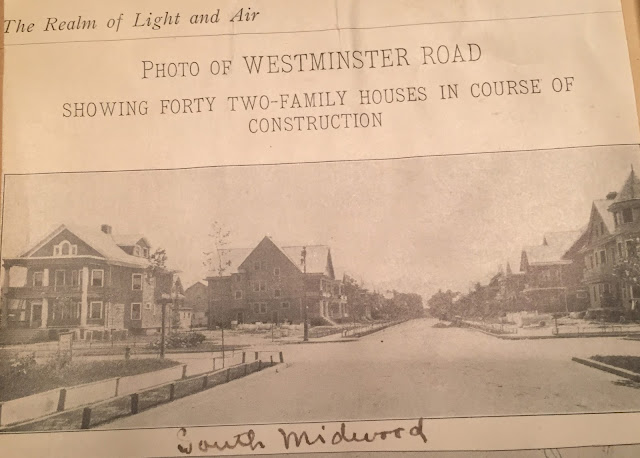 The Realm of Light and Air
PHOTO OF WESTMINSTER ROAD
SHOWING FORTY TWO-FAMILY HOUSES IN COURSE OF
CONSTRUCTION
South Midwood